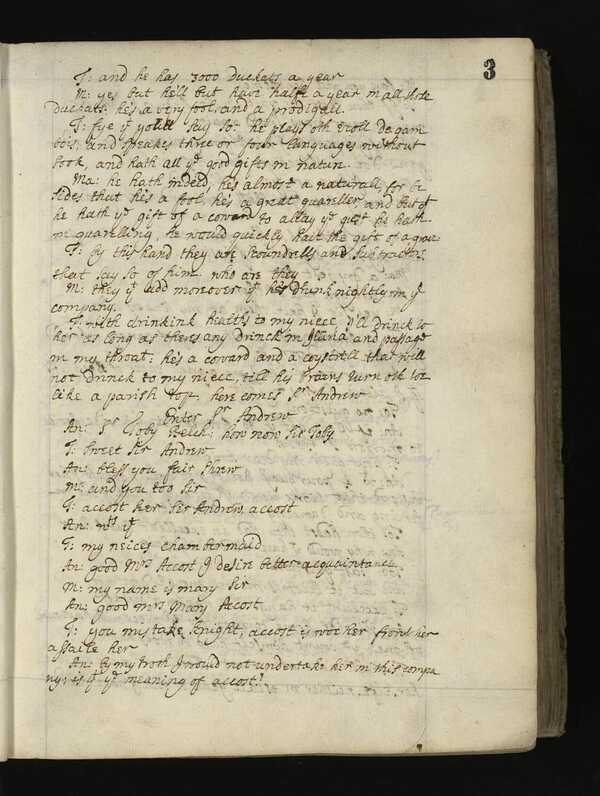 3
T: and he has 3000 Duckats a year
M: yes but he'll but have halfe a year in all these
Duckats. he's a very fool, and a prodigall.
T: fye yt youll say so: he plays oth violl De gam
bois, and speakes three or four languages without
book, and hath all ye good gifts in nature.
Ma: he hath indeed, he's almost a naturall, for be
sides that he's a fool, he's a great quareller, and but yt
he hath ye gift of a coward to allay ye gust he hath
in quarelling, he would quickly have the gift of a grave
T: by this hand they are scoundrells and substractors
that say so of him. who are they
M: they yt add moreover yt he's drunk nightly in yr
company.
T: with drinkink healths to my niece, I'll drinck to
her as long as theres any drinck in Iliria and passage
in my throat: he's a coward and a coystrell that will
not drinck to my niece, till his brains turn oth toe
like a parish top, here comes Sr Andrew
Enter Sr Andrew
An: Sr Toby Belch: how now Sir Toby.
T: sweet Sir Andrew
An: bless you fair shrew
M: and you too Sir
T: accost her Sir Andrew accost
An: wts yt
T: my neices chambermaid
An: good Mrs Accost I desire better acquaintance
M: my name is mary Sir
An: good mrs Mary Accost
T: you mistake Knight, accost is woe her front her
assaile her
An: by my troth I would not undertake her in this compa
ny; is yt ye meaning of accost?